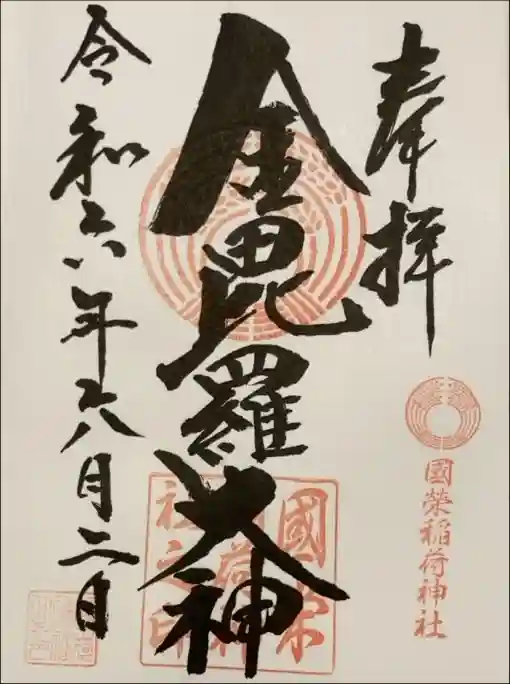 奉拝
國榮稲荷神社
金毘羅大神
國榮
稲荷神
社之印
令和六年六月二日